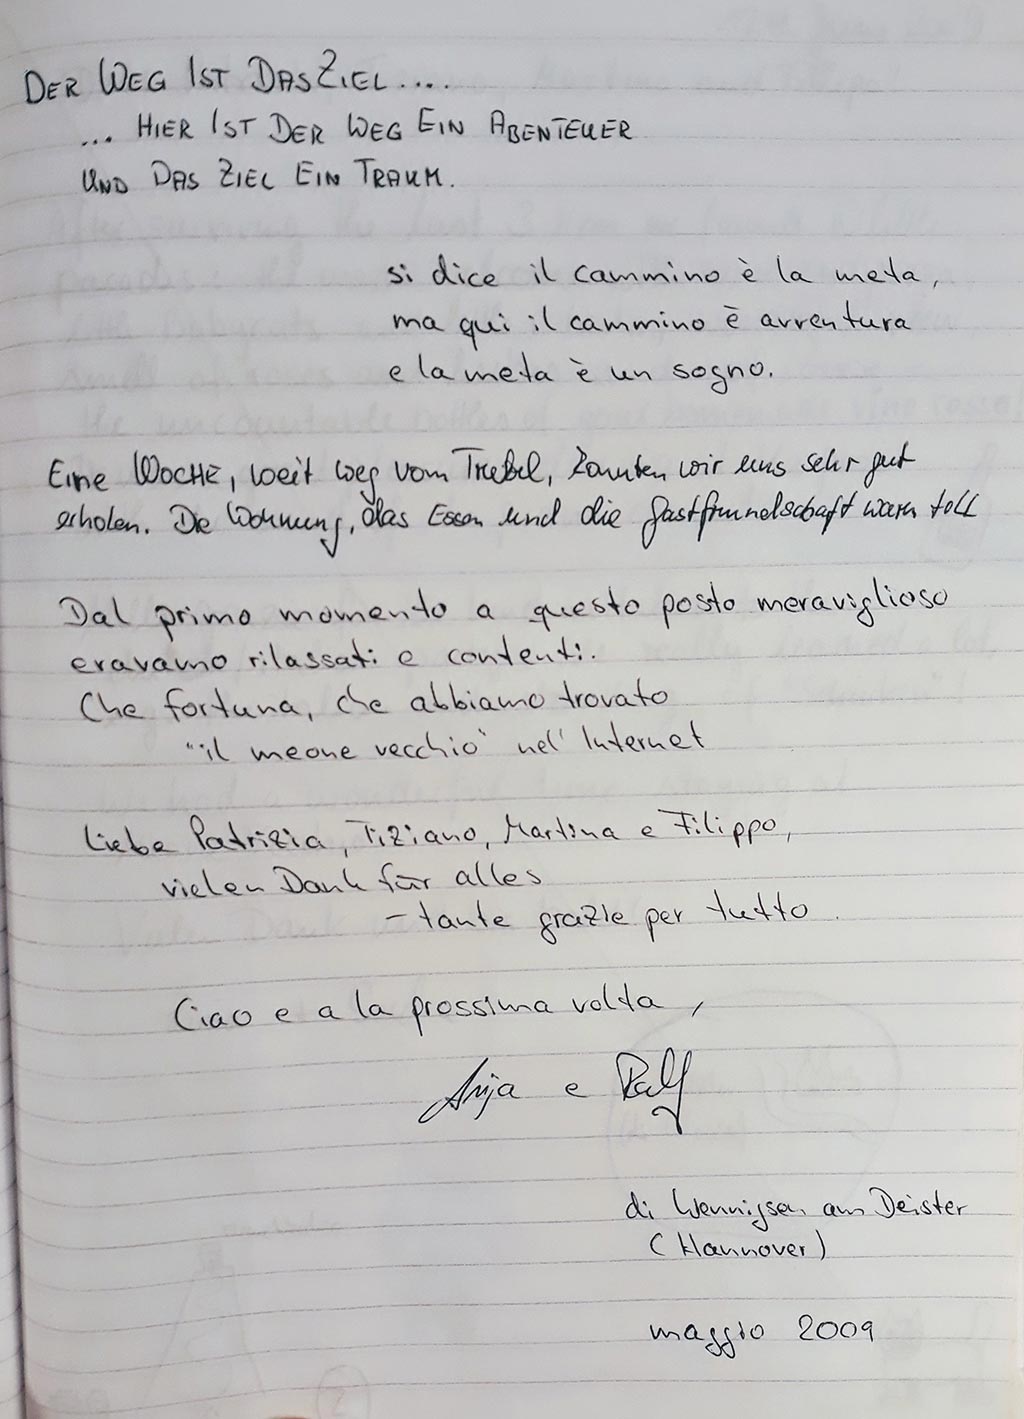 DER WEG IST DAS ZIEL....
... HIER IST DER WEG EIN ABENTEUER
UND DAS ZIEL EIN TRAUM.
si dice il cammino è la meta,
ma qui il cammino è avventura
e la meta è un sogno.
Eine WOCHE, weit weg vom Trubel, konnten wir uns sehr gut
erholen. Die Wohnung, das Essen und die Gastfreundschaft warn toll
Dal primo momento a questo posto meraviglioso
eravamo rilassati e contenti.
Che fortuna, che abbiamo trovato
"il meone vecchio" nel' Internet
Liebe Patrizia, Tiziano, Martina e Filippo,
vielen Dank für alles
- tante grazie per tutto.
Ciao e a la prossima volta,
Anja e Ralf
di Wennigsen am Deister
(Hannover)
maggio 2009